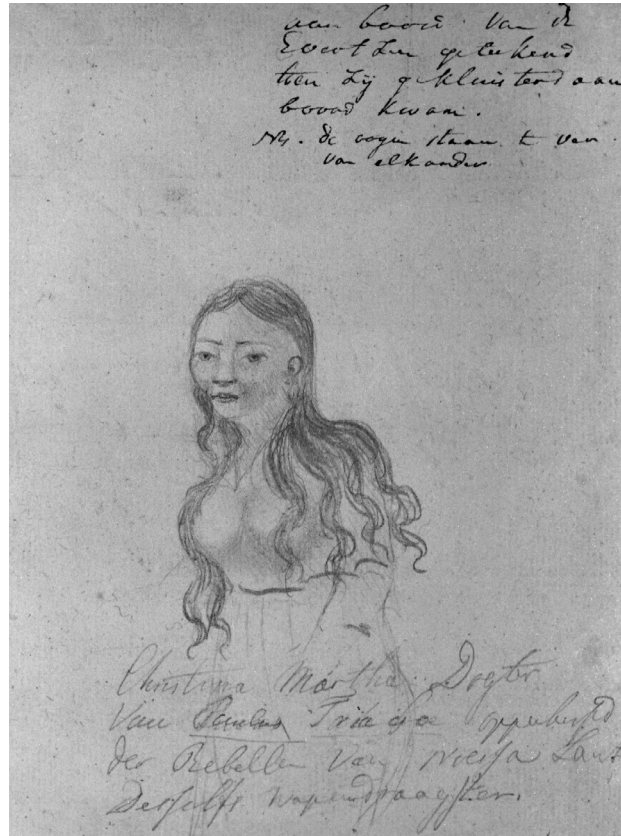 aan boord van de
Evertzen geteekend
toen zij gekluisterd aan
boord kwam.
NB. de oogen staan te ver
van elkander
Christina Martha Dogter
Van Paulus Triago opperhoofd
der Rebellen Van Noessa Laut
Deszelfs wapendraagster.